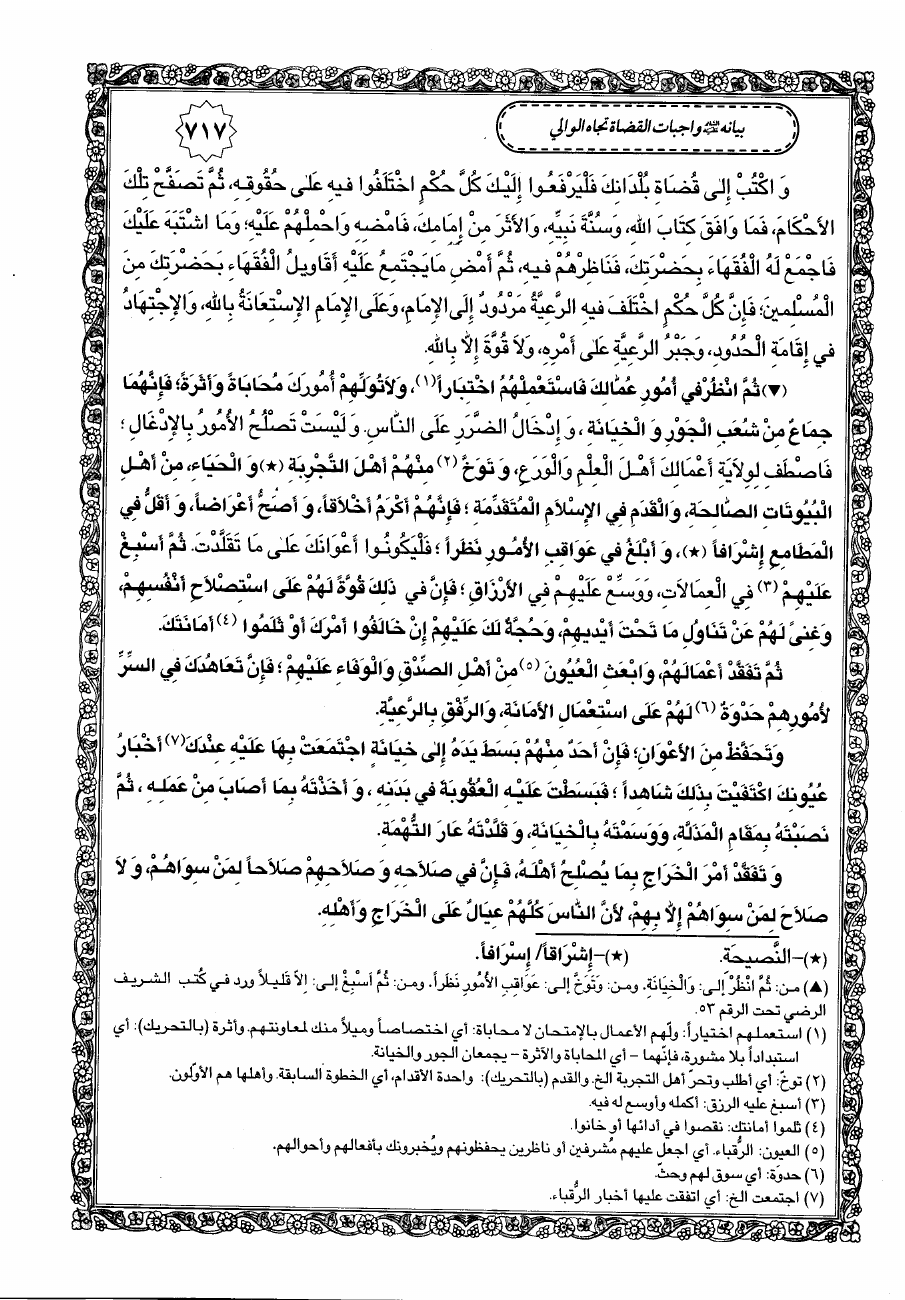 بيانه عليه السلام واجبات القضاة تجاه الوالي
٧١٧
وَ اكْتُبْ إِلى قُضَاةِ بُلْدَانِكَ فَلْيَرْفَعُوا إِلَيْكَ كُلَّ حُكْمٍ اخْتَلَفُوا فيهِ عَلى حُقُوقِهِ، ثُمَّ تَصَفَّحْ تِلْكَ
الأَحْكَامَ، فَمَا وَافَقَ كِتَابَ اللهِ، وَسُنَّةَ نَبِيِّهِ، وَالأَثَرَ مِنْ إِمَامِكَ، فَامْضِهِ وَاحْمِلْهُمْ عَلَيْهِ؛ وَمَا اشْتَبَهَ عَلَيْكَ
فَاجْمَعْ لَهُ الْفُقَهَاءَ بِحَضْرَتِكَ، فَنَاظِرْهُمْ فيهِ، ثُمَّ أَمْضِ مَايَجْتَمِعُ عَلَيْهِ أَقَاويلُ الْفُقَهَاءِ بِحَضْرَتِكَ مِنَ
الْمُسْلِمينَ؛ فَإِنَّ كُلَّ حُكْمٍ اخْتَلَفَ فيهِ الرَّعِيَّةُ مَرْدُودٌ إِلَى الإِمَامِ، وَعَلَى الإِمَامِ الاِسْتِعَانَةُ بِاللهِ، وَالاِجْتِهَادُ
في إِقَامَةِ الْحُدُودِ، وَجَبْرُ الرَّعِيَّةِ عَلى أَمْرِهِ، وَلاَ قُوَّةَ إِلاَّ بِاللهِ.
(▼) ثُمَّ انْظُرْ في أُمُورِ عُمَّالِكَ فَاسْتَعْمِلْهُمُ اخْتِبَاراً(١)، وَلاَتُوَلِّهِمْ أُمُورَكَ مُحَابَاةً وَأَثَرَةً؛ فَإِنَّهُمَا
جِمَاعٌ مِنْ شُعَبِ الْجَوْرِ وَ الْخِيَانَةِ، وَ إِدْخَالُ الضَّرَرِ عَلَى النَّاسِ. وَ لَيْسَتْ تَصْلُحُ الأُمُورُ بِالإِدْغَالِ؛
فَاصْطَفِ لِوِلاَيَةِ أَعْمَالِكَ أَهْلَ الْعِلْمِ وَالْوَرَعِ، وَ تَوَخَّ(٢) مِنْهُمْ أَهْلَ التَّجْرِبَةِ (★) وَ الْحَيَاءِ، مِنْ أَهْلِ
الْبُيُوتَاتِ الصَّالِحَةِ، وَالْقَدَمِ فِي الإِسْلاَمِ الْمُتَقَدِّمَةِ؛ فَإِنَّهُمْ أَكْرَمُ أَخْلاَقاً، وَ أَصَحُّ أَعْرَاضاً، وَ أَقَلُّ فِي
الْمَطَامِعِ إِشْرَافاً (★)، وَ أَبْلَغُ في عَوَاقِبِ الأُمُورِ نَظَراً؛ فَلْيَكُونُوا أَعْوَانَكَ عَلى مَا تَقَلَّدْتَ. ثُمَّ أَسْبِغْ
عَلَيْهِمْ(٣) فِي الْعِمَالاَتِ، وَوَسِّعْ عَلَيْهِمْ فِي الأَرْزَاقِ؛ فَإِنَّ في ذَلِكَ قُوَّةً لَهُمْ عَلَى اسْتِصْلاَحِ أَنْفُسِهِمْ،
وَغِنىً لَهُمْ عَنْ تَنَاوُلِ مَا تَحْتَ أَيْديهِمْ، وَحُجَّةً لَكَ عَلَيْهِمْ إِنْ خَالَفُوا أَمْرَكَ أَوْ ثَلَمُوا(٤) أَمَانَتَكَ.
ثُمَّ تَفَقَّدْ أَعْمَالَهُمْ، وَابْعَثِ الْعُيُونَ(٥) مِنْ أَهْلِ الصِّدْقِ وَالْوَفَاءِ عَلَيْهِمْ؛ فَإِنَّ تَعَاهُدَكَ فِي السِّرِّ
لأُمُورِهِمْ حَدْوَةٌ(٦) لَهُمْ عَلَى اسْتِعْمَالِ الأَمَانَةِ، وَالرِّفْقِ بِالرَّعِيَّةِ.
وَتَحَفَّظْ مِنَ الأَعْوَانِ؛ فَإِنْ أَحَدٌ مِنْهُمْ بَسَطَ يَدَهُ إِلى خِيَانَةٍ اجْتَمَعَتْ بِهَا عَلَيْهِ عِنْدَكَ(٧) أَخْبَارُ
عُيُونِكَ اكْتَفَيْتَ بِذَلِكَ شَاهِداً؛ فَبَسَطْتَ عَلَيْهِ الْعُقُوبَةَ في بَدَنِهِ، وَ أَخَذْتَهُ بِمَا أَصَابَ مِنْ عَمَلِهِ، ثُمَّ
نَصَبْتَهُ بِمَقَامِ الْمَذَلَّةِ، وَوَسَمْتَهُ بِالْخِيَانَةِ، وَ قَلَّدْتَهُ عَارَ التُّهْمَةِ.
وَ تَفَقَّدْ أَمْرَ الْخَرَاجِ بِمَا يُصْلِحُ أَهْلَهُ، فَإِنَّ في صَلاَحِهِ وَ صَلاَحِهِمْ صَلاَحاً لِمَنْ سِوَاهُمْ، وَ لاَ
صَلاَحَ لِمَنْ سِوَاهُمْ إِلاَّ بِهِمْ، لأَنَّ النَّاسَ كُلَّهُمْ عِيَالٌ عَلَى الْخَرَاجِ وَأَهْلِهِ.
(★)-النَّصيحَةِ. (★)-إِشْرَاقاً/ إِسْرَافاً.
(▲) من: ثُمَّ انْظُرْ إلى: وَالْخِيَانَةِ. ومن: وَتَوَخَّ إلى: عَوَاقِبِ الأُمُورِ نَظَراً. ومن: ثُمَّ أَسْبِغْ إلى: إِلاَّ قَليلاً ورد في كُتب الشريف
الرضي تحت الرقم ٥٣.
(١) استعملهم اختباراً: ولّهم الأعمال بالإمتحان لا محاباة: أي اختصاصاً وميلاً منك لمعاونتهم. وأثرة (بالتحريك): أي
استبداداً بلا مشورة، فإنّهما - أي المحاباة والآثرة - يجمعان الجور والخيانة.
(٢) توخّ: أي أطلب وتحرّ أهل التجربة الخ. والقدم (بالتحريك): واحدة الأقدام، أي الخطوة السابقة. وأهلها هم الأوّلون.
(٣) أسبغ عليه الرزق: أكمله وأوسع له فيه.
(٤) ثلموا أمانتك: نقصوا في أدائها أو خانوا.
(٥) العيون: الرُّقباء. أي اجعل عليهم مُشرفين أو ناظرين يحفظونهم ويُخبرونك بأفعالهم وأحوالهم.
(٦) حدوَة: أي سوق لهم وحثّ.
(٧) اجتمعت الخ: أي اتفقت عليها أخبار الرُّقباء.